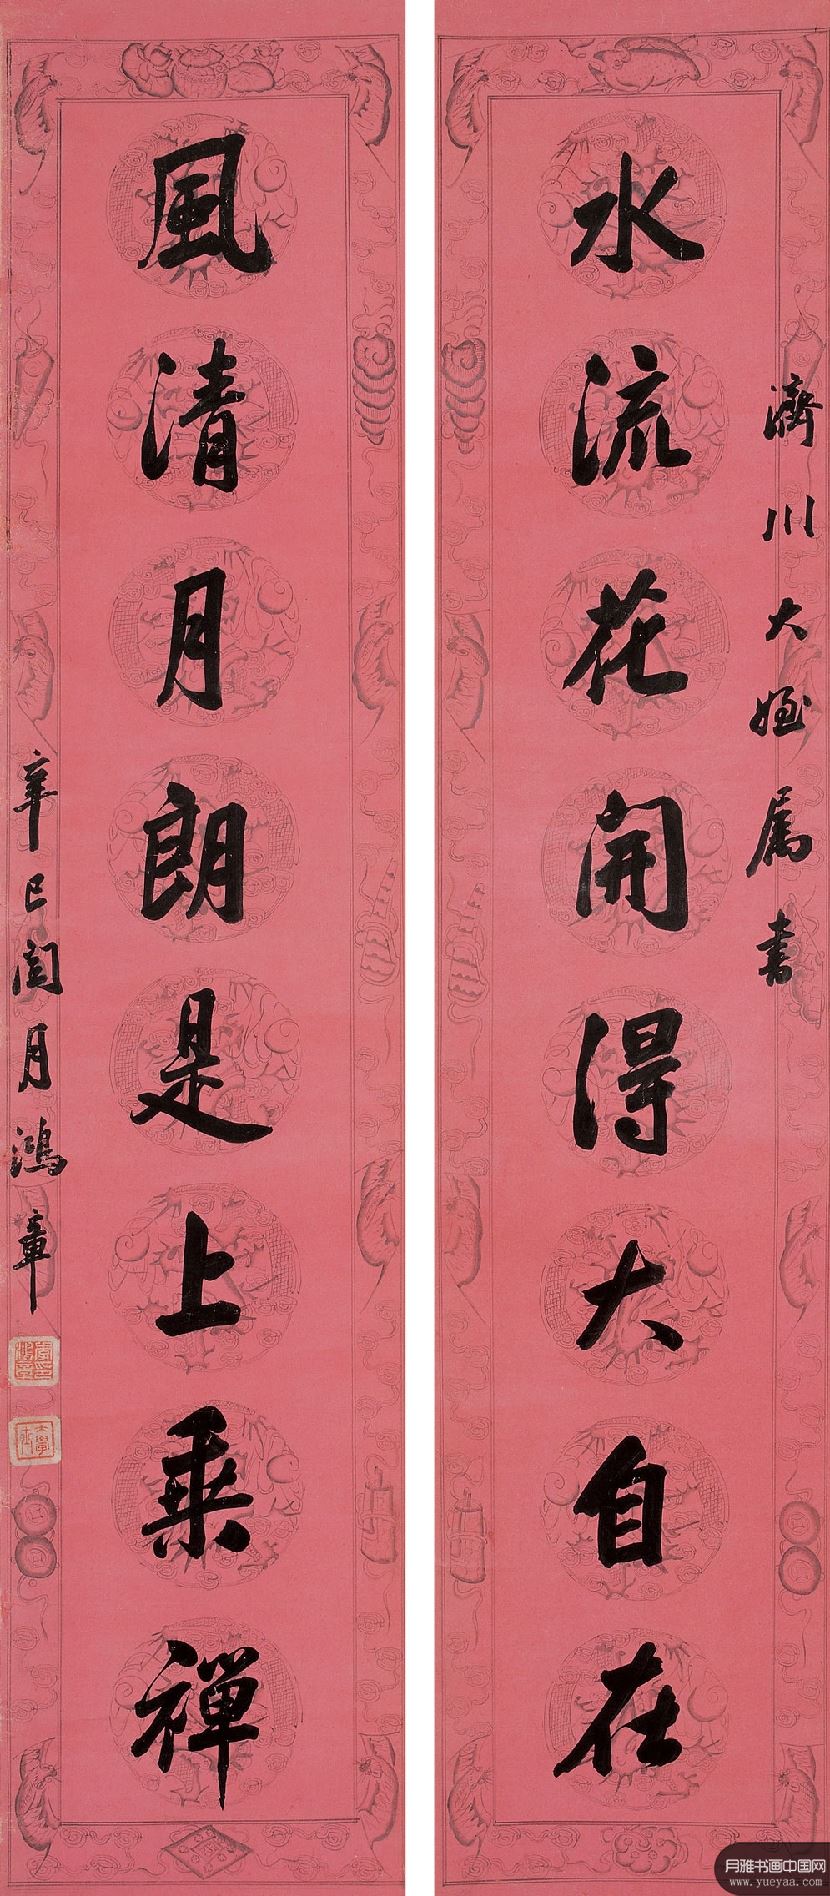 濟川大姪属書
水流花開得大自在
風清月朗是上乘禪
辛巳閏月鴻章
月雅书画中国网
www.yueyaa.com